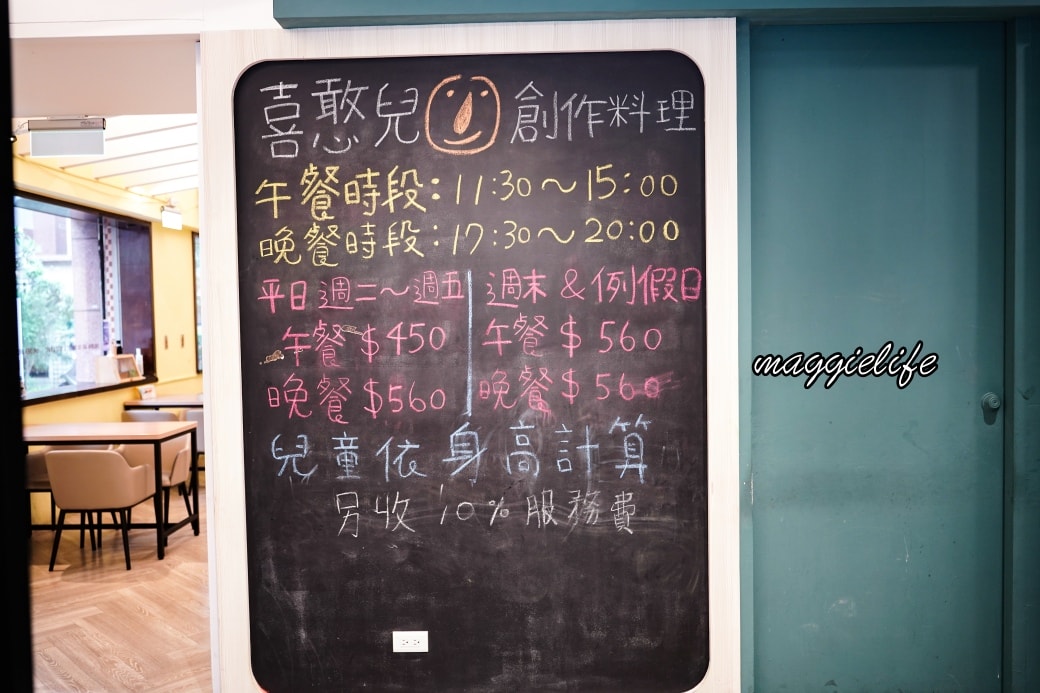 喜憨兒 創作料理
午餐時段：11:30～15:00
晚餐時段：17:30～20:00
平日 週二～週五
午餐 $450
晚餐 $560
週末 & 例假日
午餐 $ 560
晚餐 $ 560
兒童依身高計算
另收 10% 服務費
maggielife